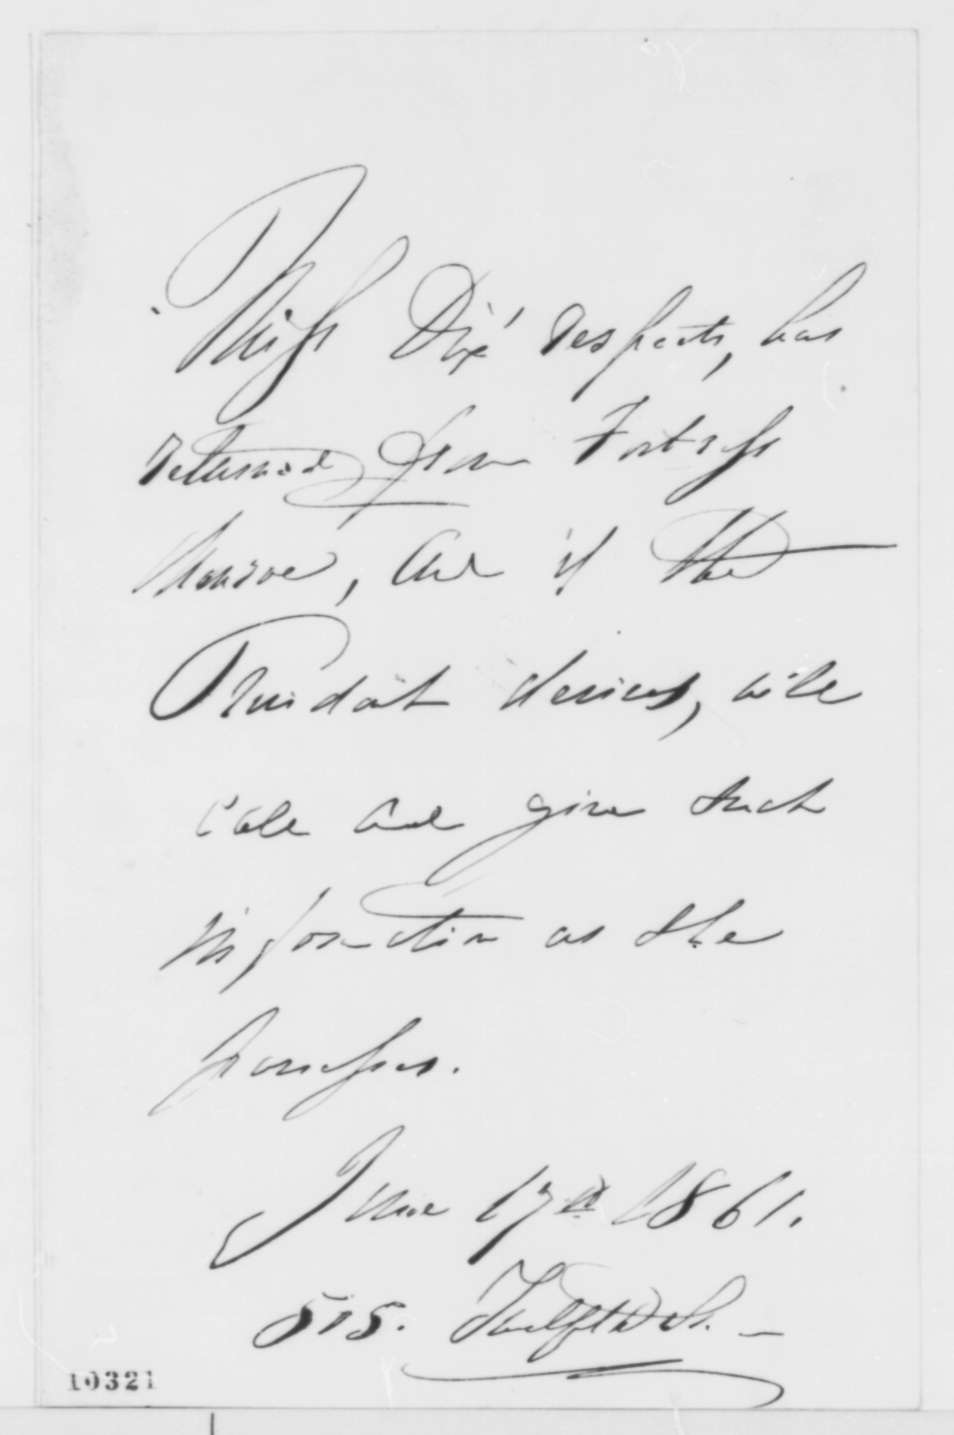 Miss Dix' respects, has
returned from Fortress
Monroe, and if the
President desires, will
call and give such
information as she
possesses.
June 17th 1861.
515. Twelfth St. –
10321